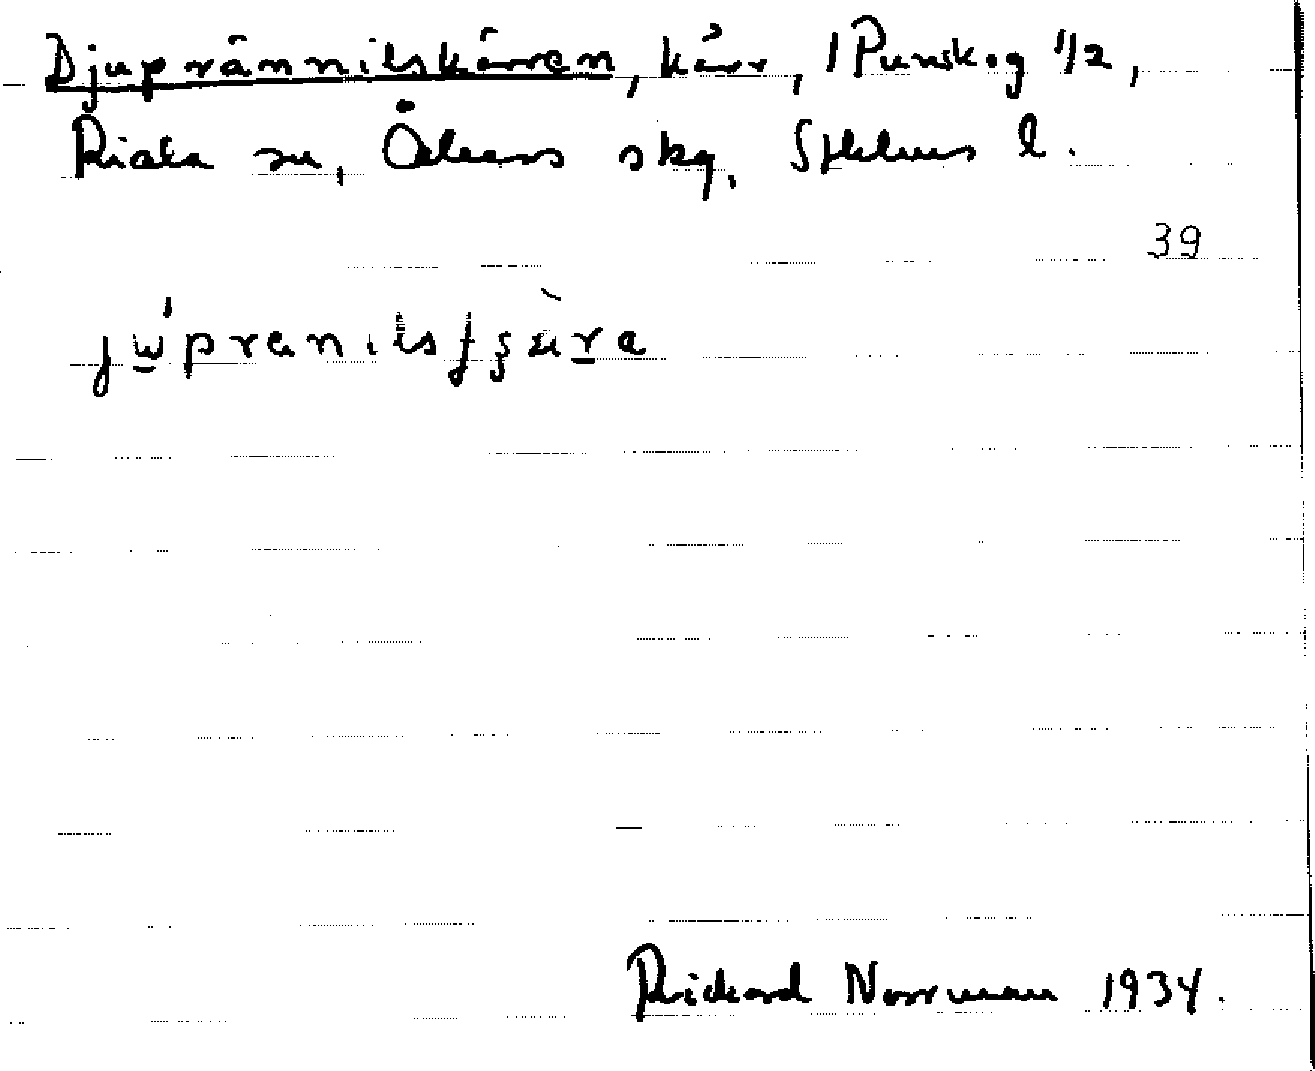 Djuprännilskärren, kärr, 1 Punskog 1/2,
Riala sn, Åkers skg, Sthlms l.
39
Rickard Norrman 1934.